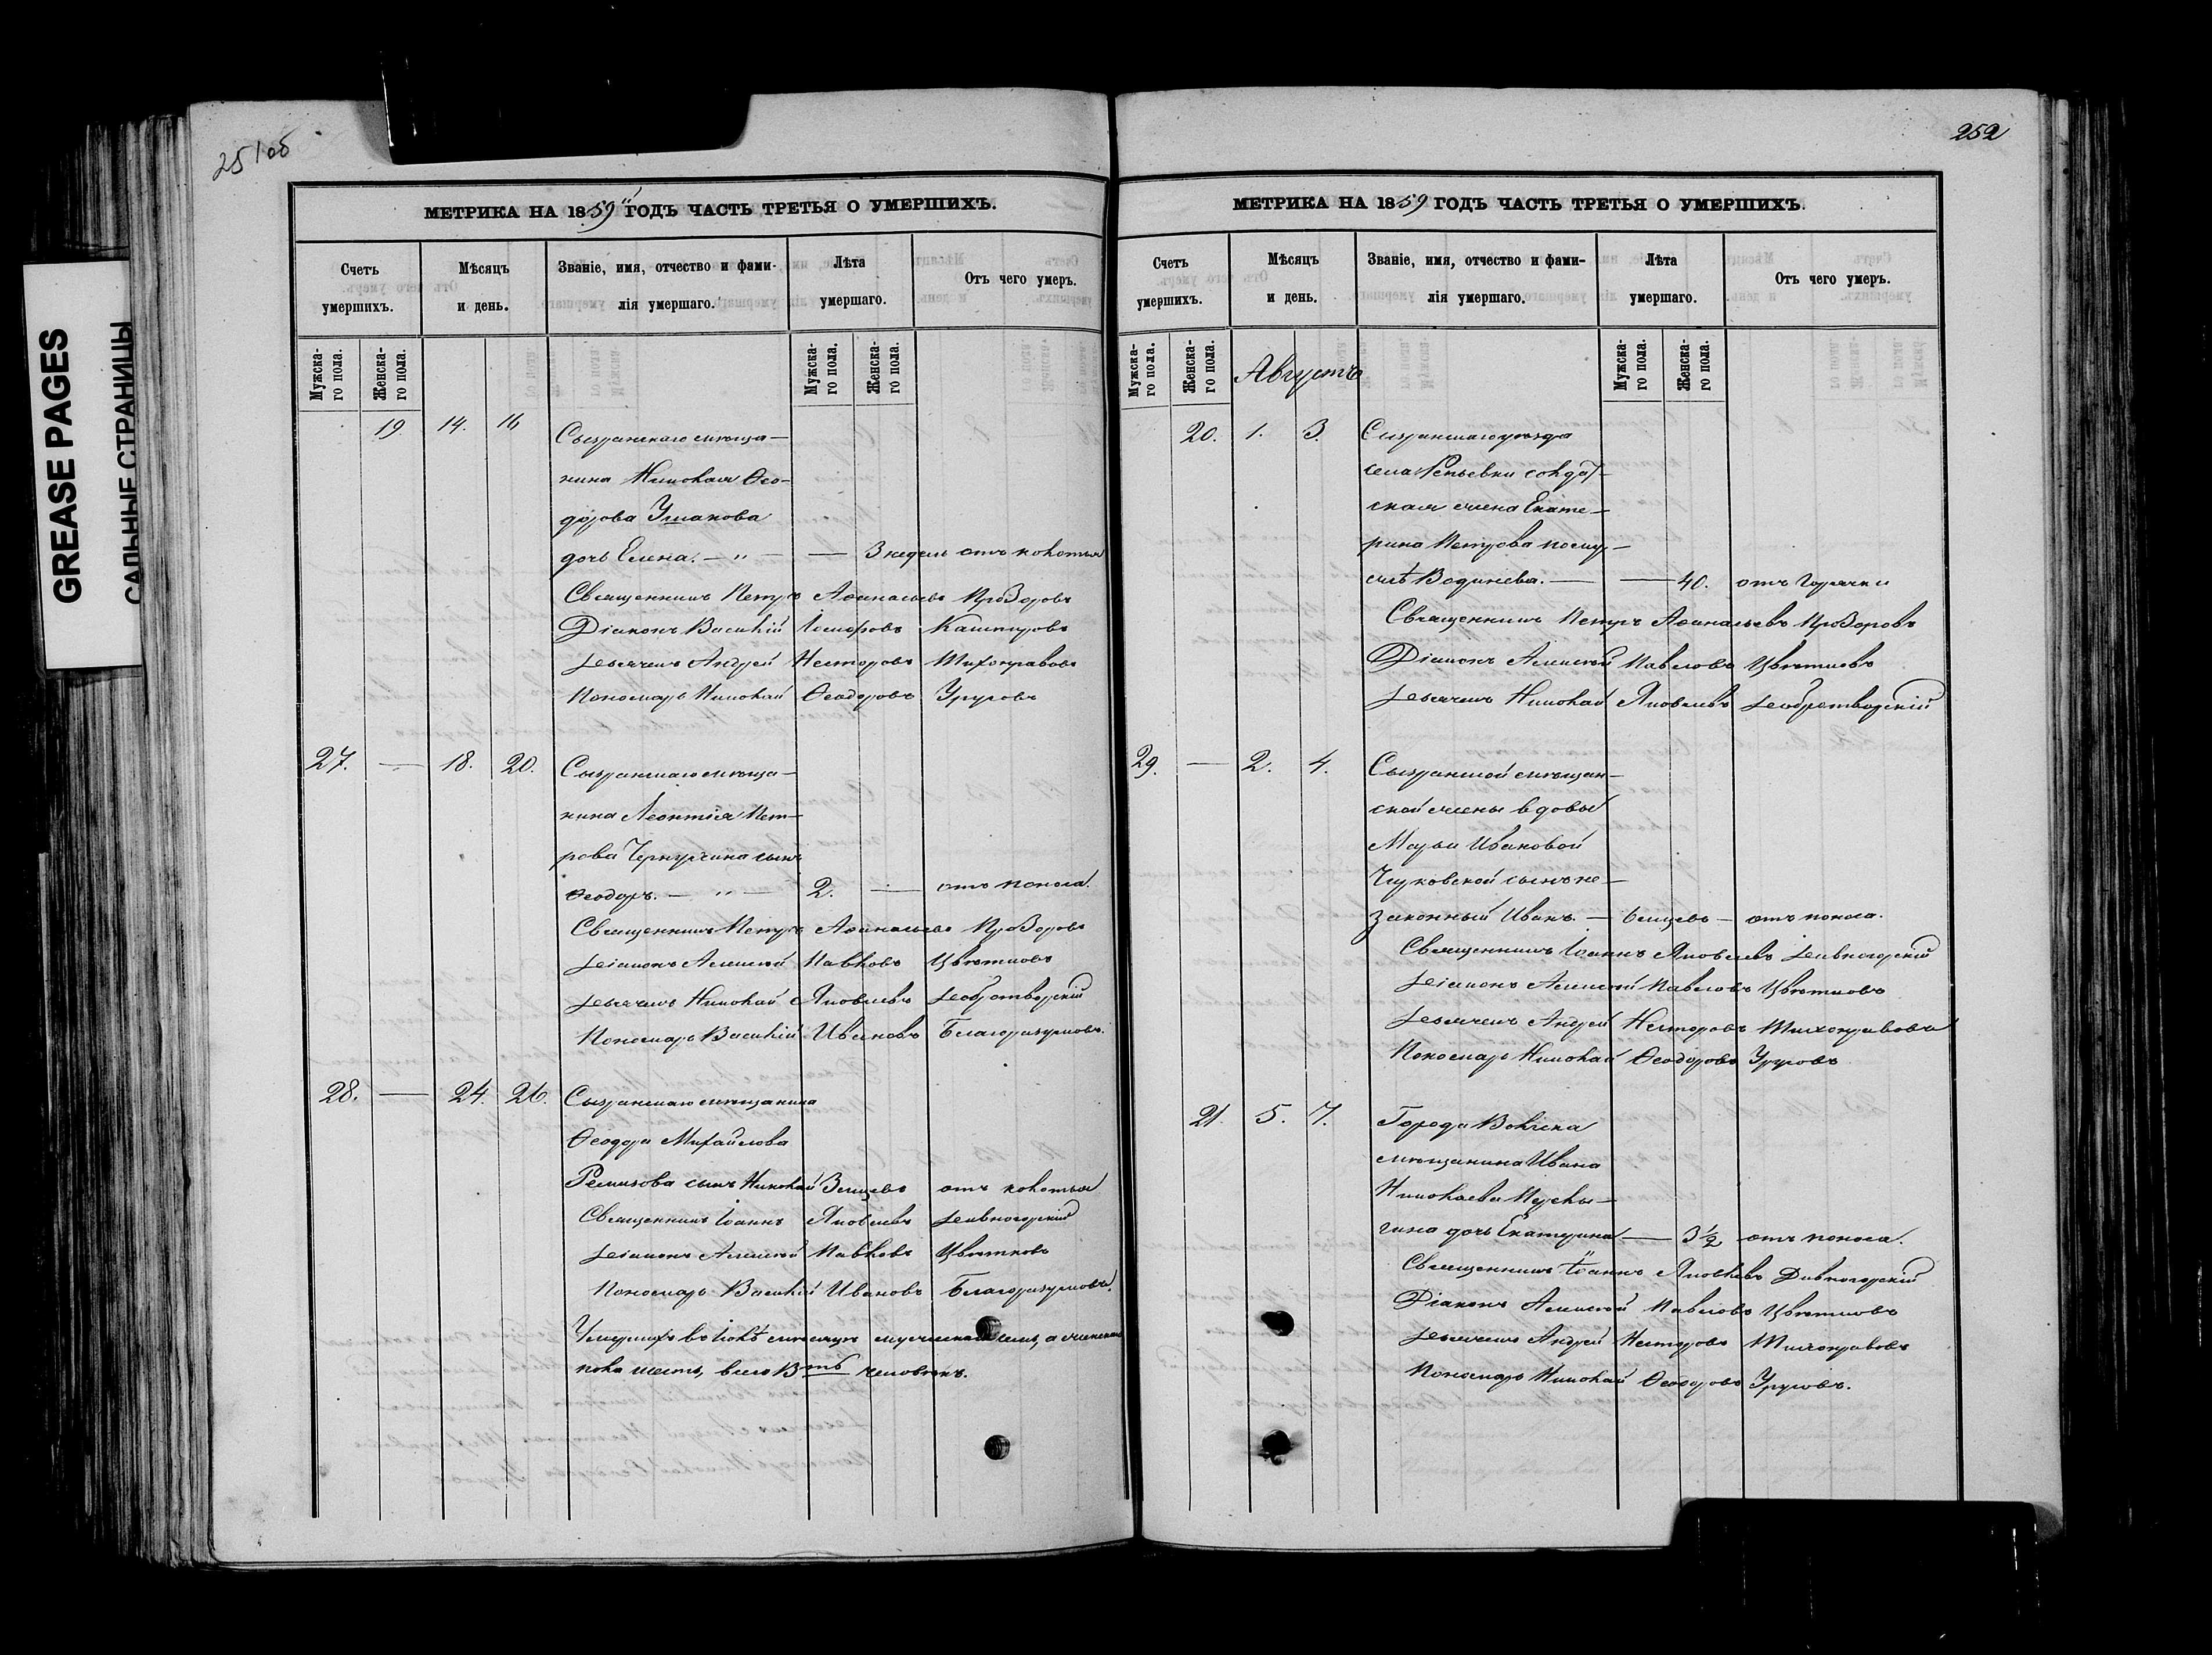 GREASE PAGES
САЛЬНЫЕ СТРАНИЦЫ
251об
МЕТРИКА НА 1859 ГОДЪ ЧАСТЬ ТРЕТЬЯ О УМЕРШИХЪ.
Счетъ умершихъ. Мѣсяцъ и день. Званіе, имя, отчество и фами-лія умершаго. Лѣта умершаго. Отъ чего умеръ.
Мужска-го пола. Женска-го пола. Мужска-го пола. Женска-го пола.
19. 14. 16 Сызранскаго мѣща-
нина Николая Ѳео-
дорова Ушакова
дочь Елена. — „ — — 3 недель отъ колотья
Священникъ Петръ Аѳанасьевъ Прозоровъ
Діаконъ Василій Кашпуровъ
Дьячекъ Андрей Несторовъ Тихонравовъ
Пономарь Николай Ѳеодоровъ Уруровъ
27. — 18. 20. Сызранскаго мѣща-
нина Леонтія Пет-
рова сынъ
Ѳеодоръ. — „ — 2. — отъ поноса.
Священникъ Петръ Аѳанасьевъ Прозоровъ
Діаконъ Алексѣй Павловъ Цвѣтковъ
Дьячекъ Николай Яковлевъ Добротворскій
Пономарь Василій Ивановъ Благоразумовъ.
28. — 24. 26. Сызранскаго мѣщанина
Ѳеодора Михайлова
Ремизова сынъ Николай 3 мѣсцевъ отъ колотья
Священникъ Іоаннъ Яковлевъ Дивногорскій
Діаконъ Алексѣй Павловъ Цвѣтковъ
Пономарь Василій Ивановъ Благоразумовъ.
Умершихъ въ Іюлѣ мѣсяцѣ мужеска семь, а женска
пола шесть, всего 13ть человѣкъ.
252
МЕТРИКА НА 1859 ГОДЪ ЧАСТЬ ТРЕТЬЯ О УМЕРШИХЪ.
Счетъ умершихъ. Мѣсяцъ и день. Званіе, имя, отчество и фами-лія умершаго. Лѣта умершаго. Отъ чего умеръ.
Мужска-го пола. Женска-го пола. Мужска-го пола. Женска-го пола.
Августъ
20. 1. 3. Сызранскаго уѣзда
села Репьевки солдат-
ская жена Екате-
рина Петрова по му-
жѣ Водинева. — — 40. отъ горячки
Священникъ Петръ Аѳанасьевъ Прозоровъ
Діаконъ Алексѣй Павловъ Цвѣтковъ
Дьячекъ Николай Яковлевъ Добротворскій
29. — 2. 4. Сызранской мѣщан-
ской жены вдовы
Марьи Ивановой
Чуковской сынъ не-
законный Иванъ. — 6 мѣсцевъ — отъ поноса.
Священникъ Іоаннъ Яковлевъ Дивногорскій
Діаконъ Алексѣй Павловъ Цвѣтковъ
Дьячекъ Андрей Несторовъ Тихонравовъ
Пономарь Николай Ѳеодоровъ Уруровъ
21. 5. 7. Города Вольска
мѣщанина Ивана
Николаева
дочь Екатерина — 3½ отъ поноса.
Священникъ Іоаннъ Яковлевъ Дивногорскій
Діаконъ Алексѣй Павловъ Цвѣтковъ
Дьячекъ Андрей Несторовъ Тихонравовъ
Пономарь Николай Ѳеодоровъ Уруровъ.